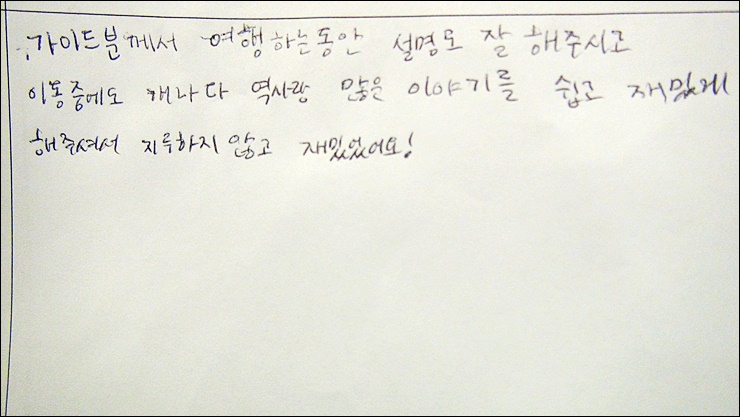 가이드분께서 여행하는동안 설명도 잘 해주시고
이동중에도 캐나다 역사랑 많은 이야기를 쉽고 재밌게
해주셔서 지루하지 않고 재밌었어요!